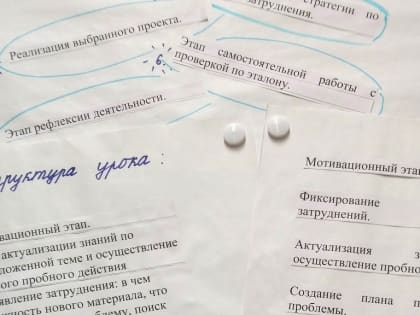 стратегии по
затруднения.
Реализация выбранного проекта.
6.
Этап самостоятельной работы с
проверкой по эталону.
Этап рефлексии деятельности.
руктура урока:
вационный этап.
актуализации знаний по
ложенной теме и осуществление
ого пробного действия
явление затруднения: в чем
ность нового материала, что
блему, поиск
Мотивационный этап
Фиксирование
затруднений.
Актуализация з
осуществление пробно
Создание плана п
проблемы.